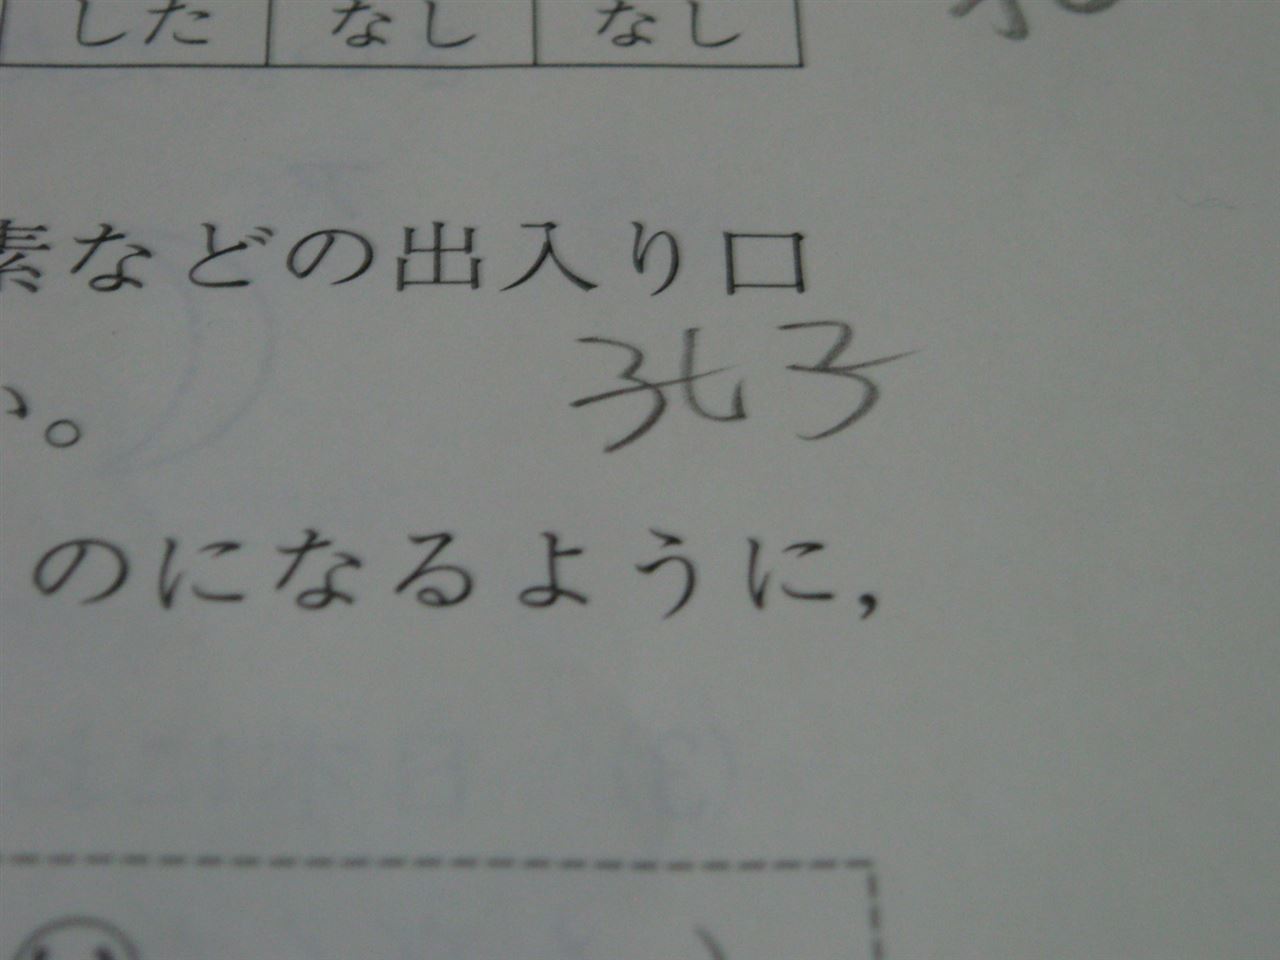 した なし なし
素などの出入り口
孔子
い。
のになるように,